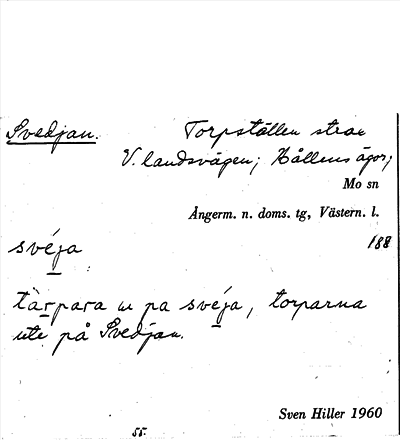 Svedjan. Torpställen strax
V. landsvägen; Hållens ägor;
Mo sn
Ångerm. n. doms. tg, Västern. l.
svéja 188
tàrpara u pa svéja, torparna
ute på Svedjan.
Sven Hiller 1960
55.